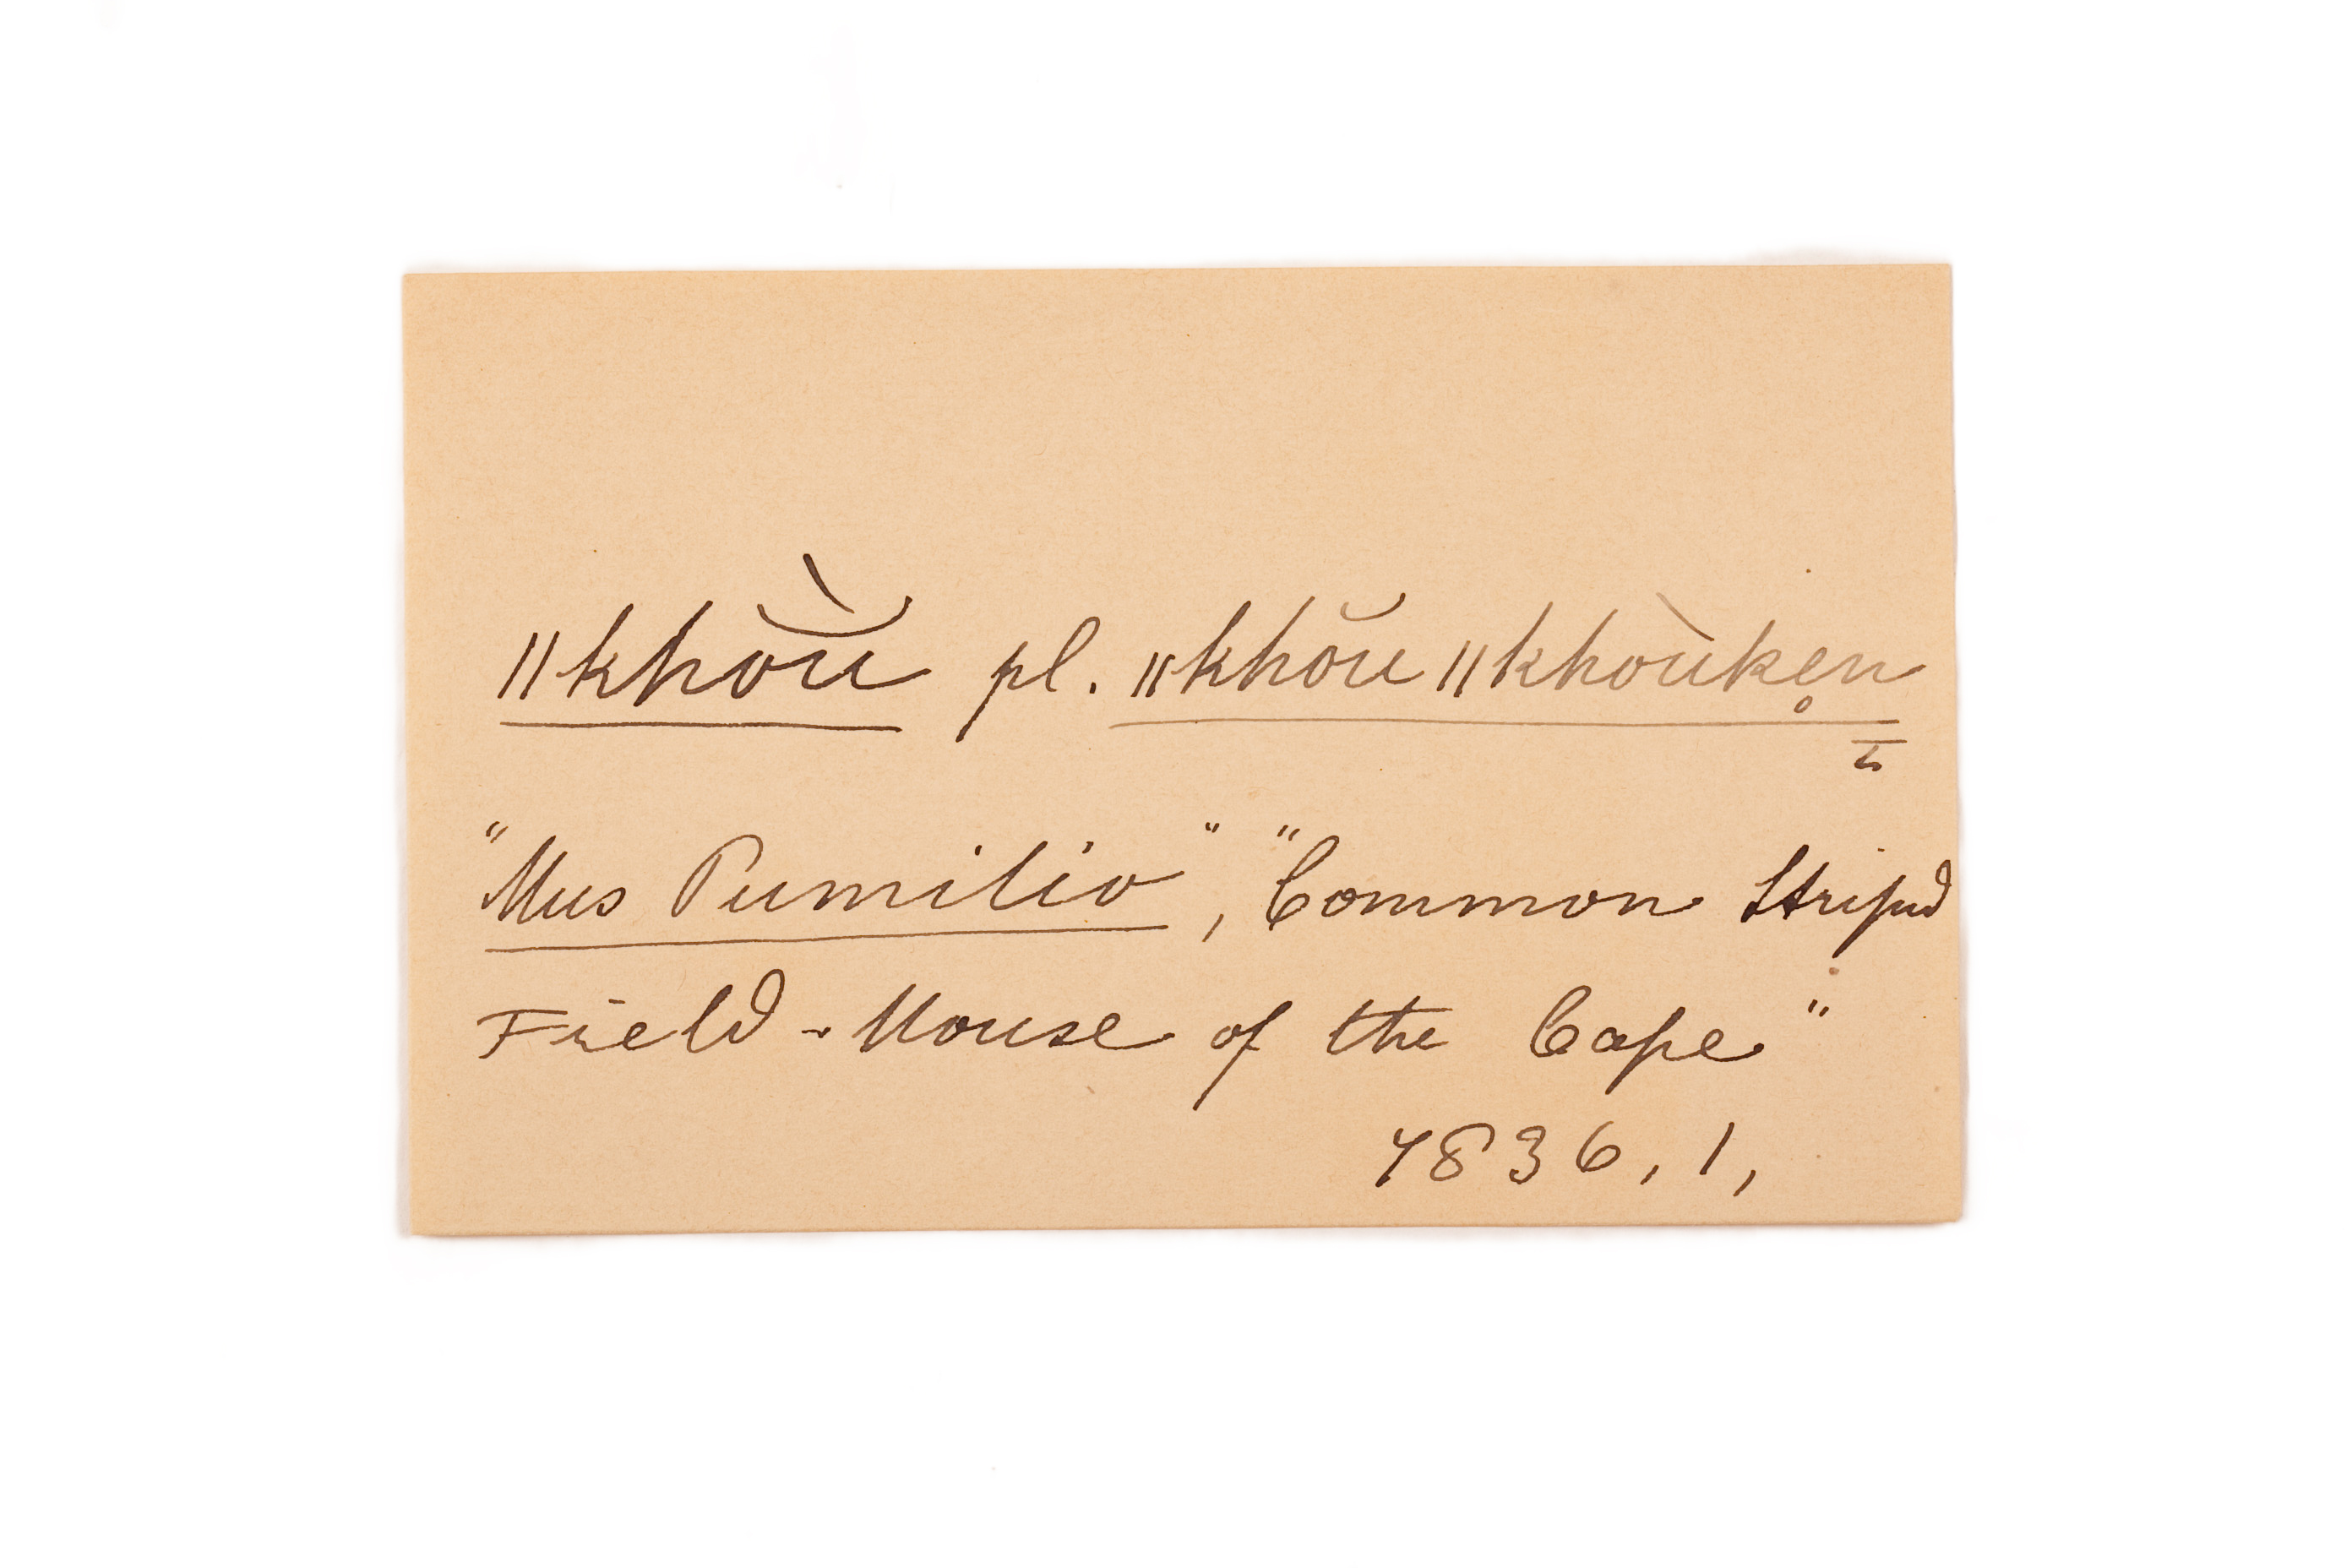 ǁkho͝ù pl. ǁkho͝u ǁkhoùken̥
"Mus Pumilio", "Common Striped
Field-Mouse of the Cape"
7836, 1,